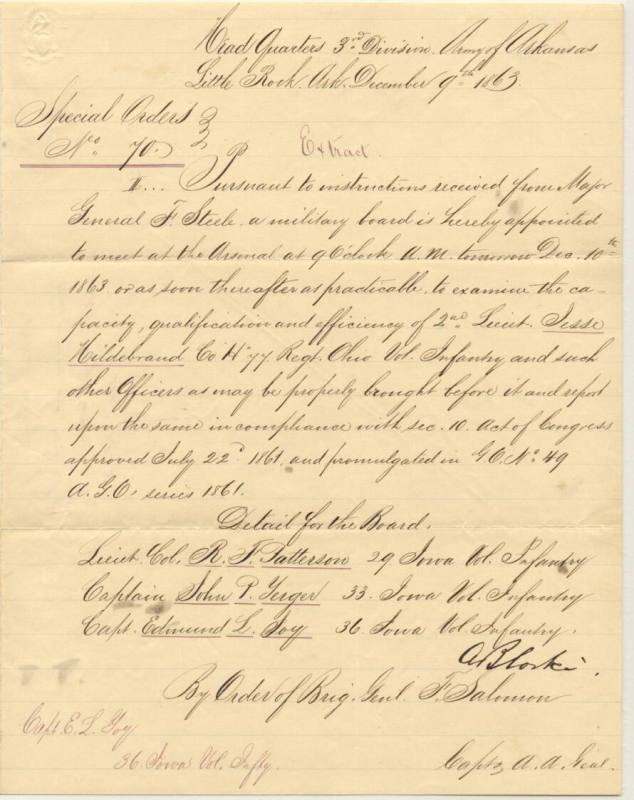 Head Quarters 3rd Division. Army of Arkansas
Little Rock. Ark. December 9th 1863.
Special Orders
No. 70.
Extract.
II... Pursuant to instructions received from Major
General F. Steele. a military board is hereby appointed
to meet at the Arsenal at 9 O'clock A.M. tomorrow Dec. 10th
1863. or as soon thereafter as practicable. to examine the ca-
pacity, qualification and efficiency of 2nd Lieut. Jesse
Hildebrand Co H 77 Regt. Ohio Vol. Infantry and such
other Officers as may be properly brought before it and report
upon the same in compliance with sec. 10. Act of Congress
approved July 22d 1861. and promulgated in G.O. No. 49
A.G.O. series 1861.
Detail for the Board.
Lieut. Col. R. F. Patterson 29 Iowa Vol. Infantry
Captain John P. Yerger 33. Iowa Vol. Infantry
Capt. Edmund L. Joy 36 Iowa Vol. Infantry.
By Order of Brig. Genl. F. Salomon
Capt. E. L. Joy
36. Iowa Vol. Infty.
Capt & A. A. Genl.